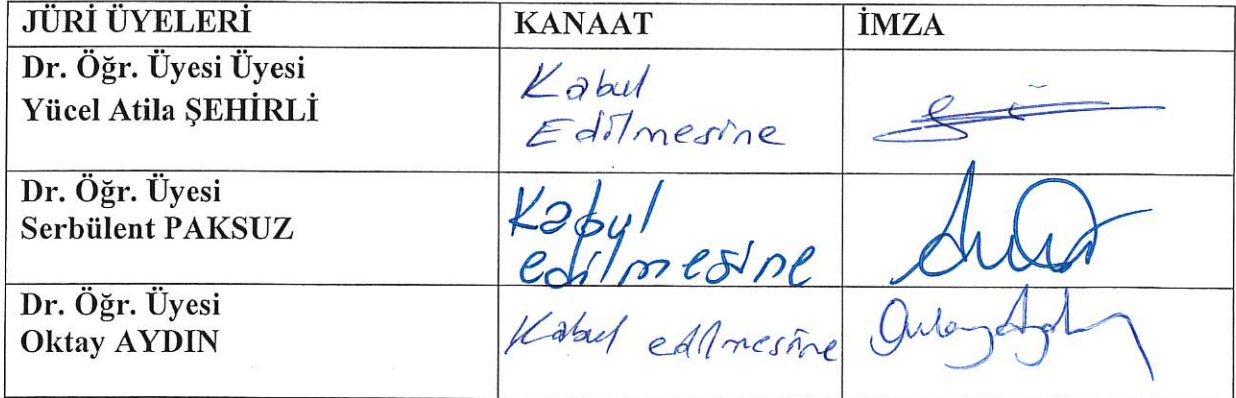 JÜRİ ÜYELERİ KANAAT İMZA
Dr. Öğr. Üyesi Üyesi
Yücel Atila ŞEHİRLİ
Kabul
Edilmesine
Dr. Öğr. Üyesi
Serbülent PAKSUZ
Kabul
edilmesine
Dr. Öğr. Üyesi
Oktay AYDIN
Kabul edilmesine